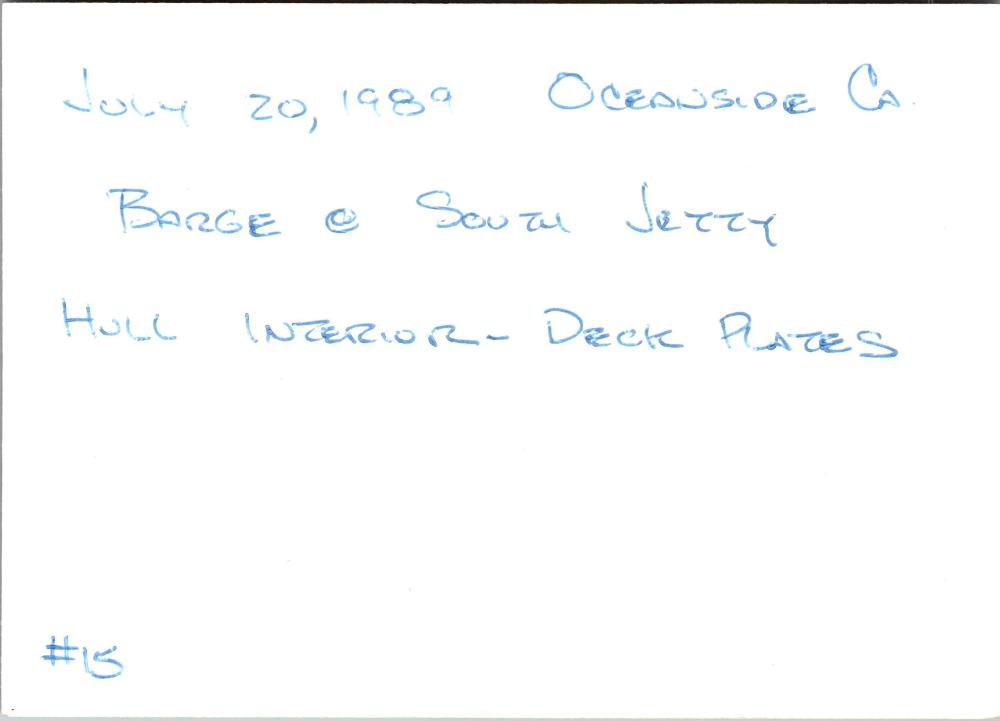 July 20, 1989 Oceanside Ca.
Barge @ South Jetty
Hull Interior - Deck Plates
#15